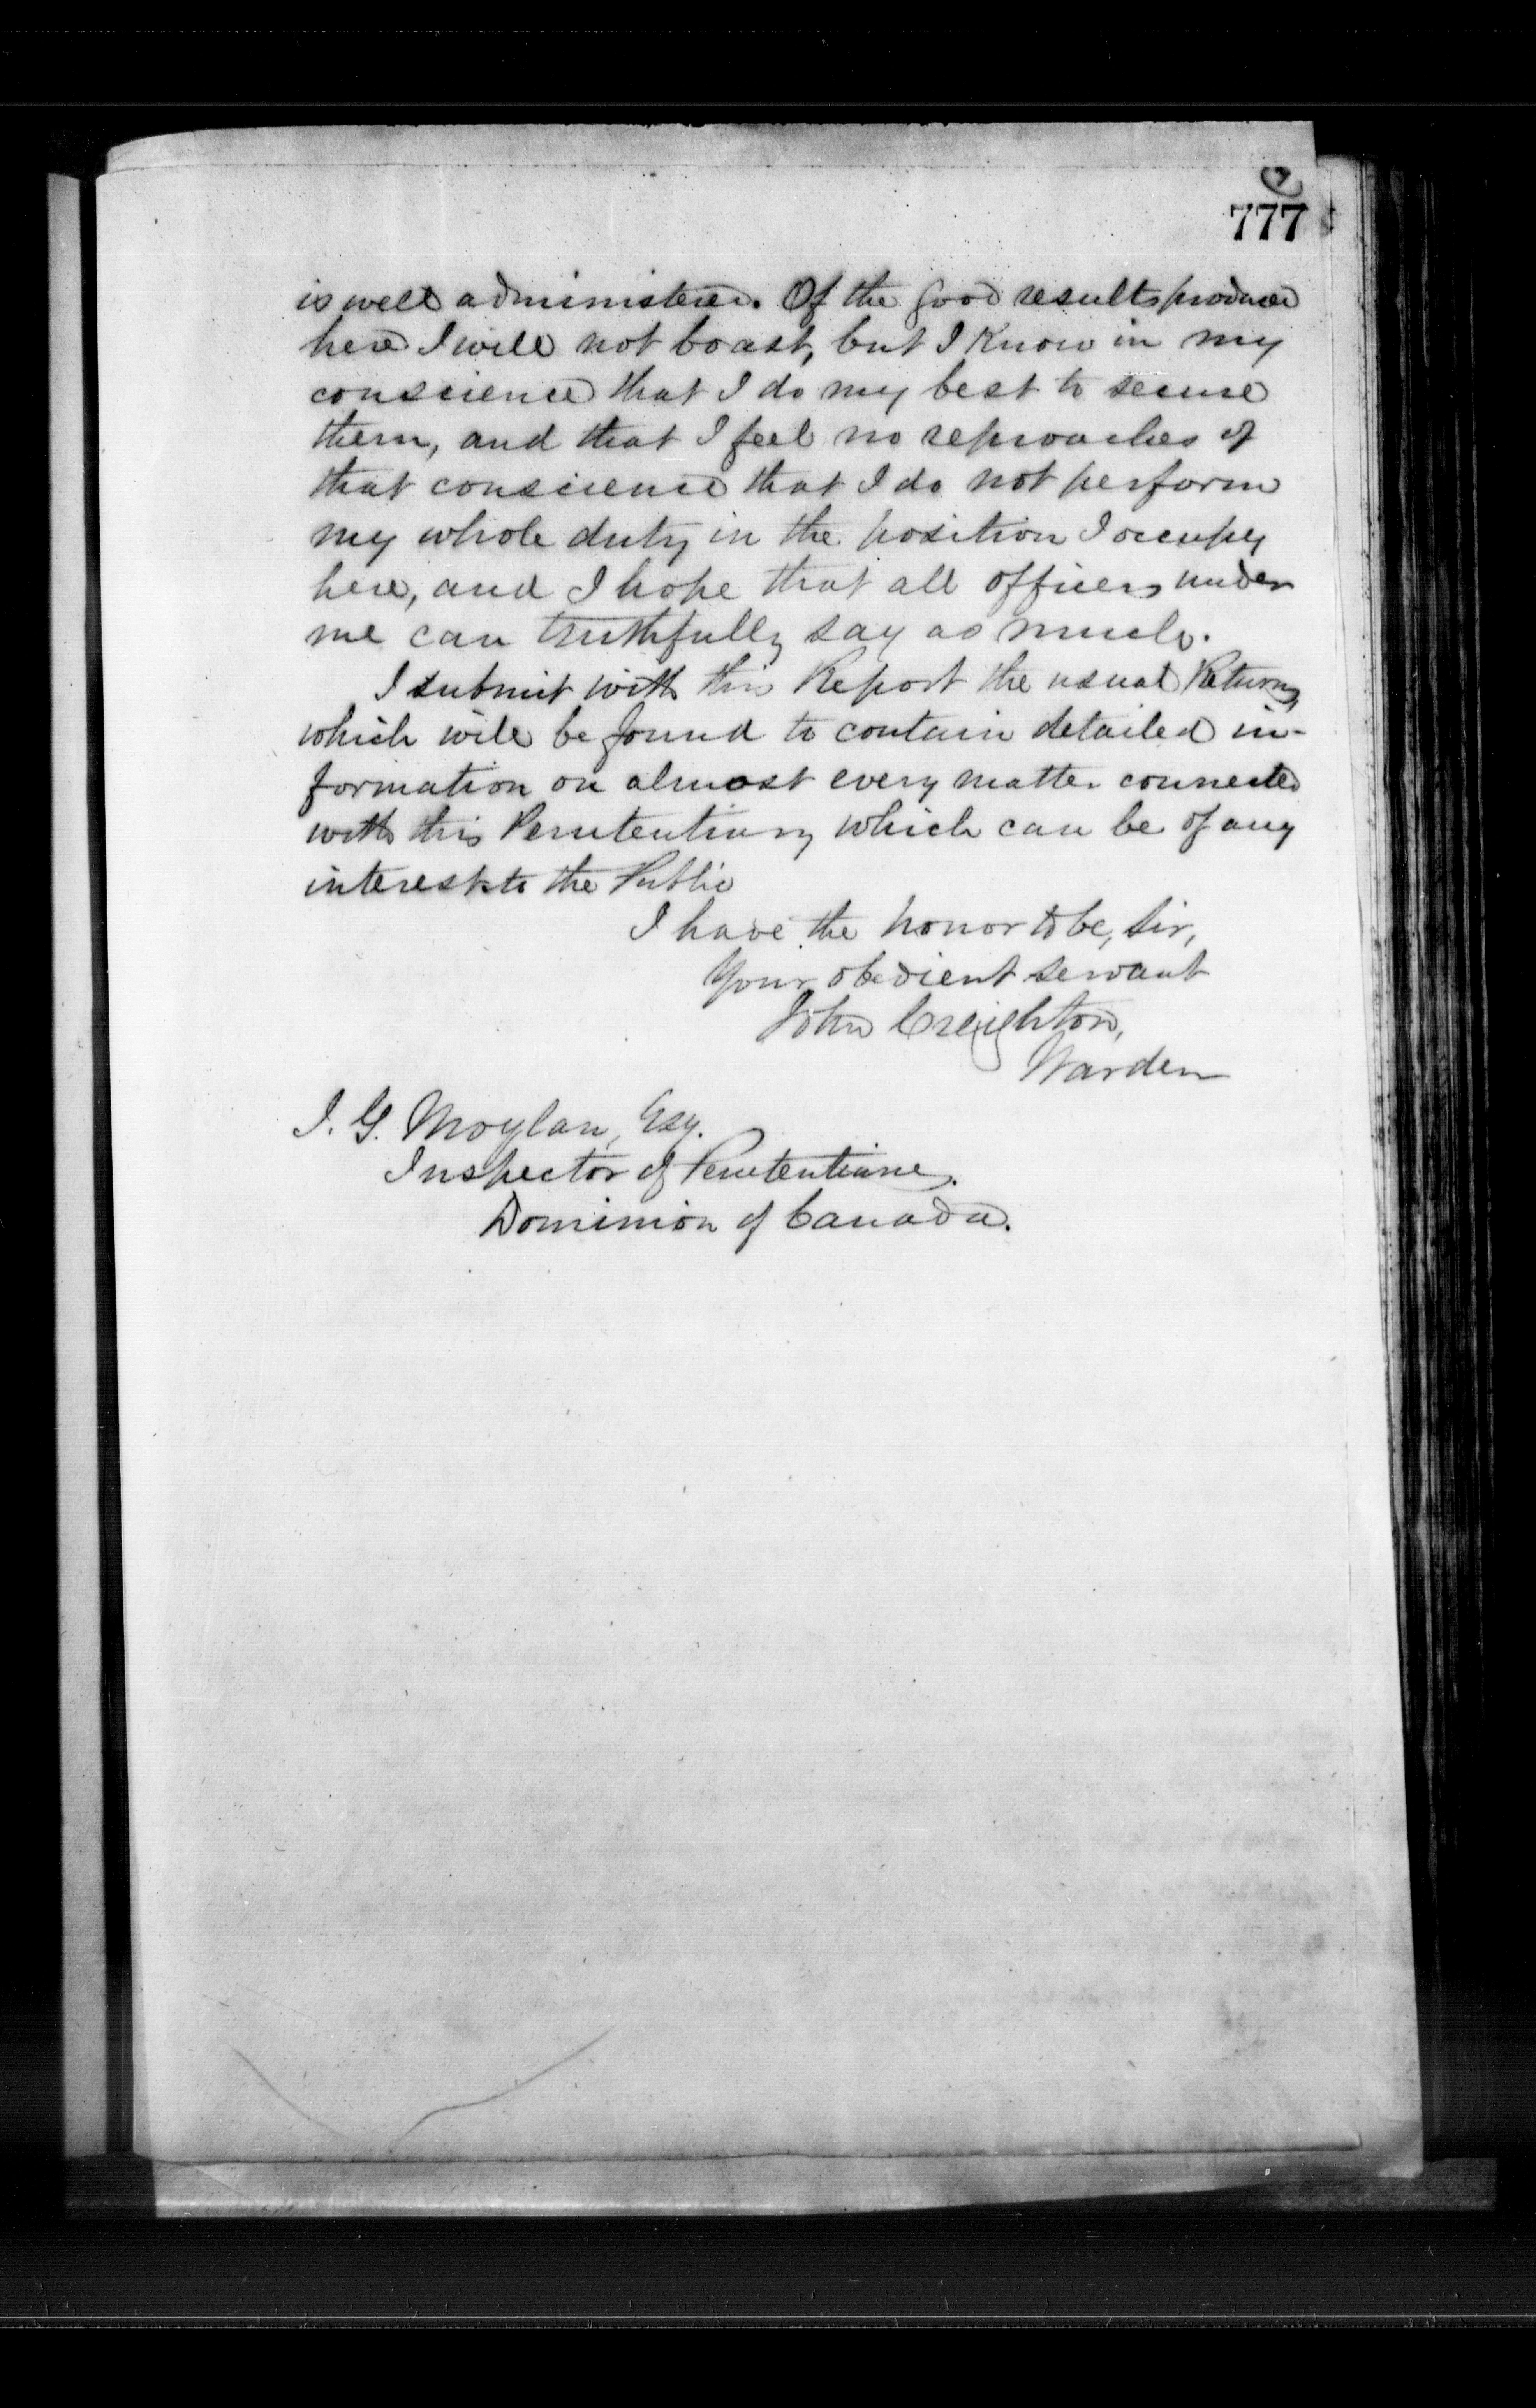 777
is well administered. Of the good results produced
here I will not boast, but I know in my
conscience that I do my best to secure
them, and that I feel no reproaches of
that conscience that I do not perform
my whole duty in the position I occupy
here, and I hope that all officers under
me can truthfully say as much.
I submit with this Report the usual Returns,
which will be found to contain detailed in-
formation on almost every matter connected
with this Penitentiary which can be of any
interest to the Public
I have the honor to be, Sir,
Your obedient servant
John Creighton,
Warden
J. G. Moylan, Esq.
Inspector of Penitentiaries.
Dominion of Canada.